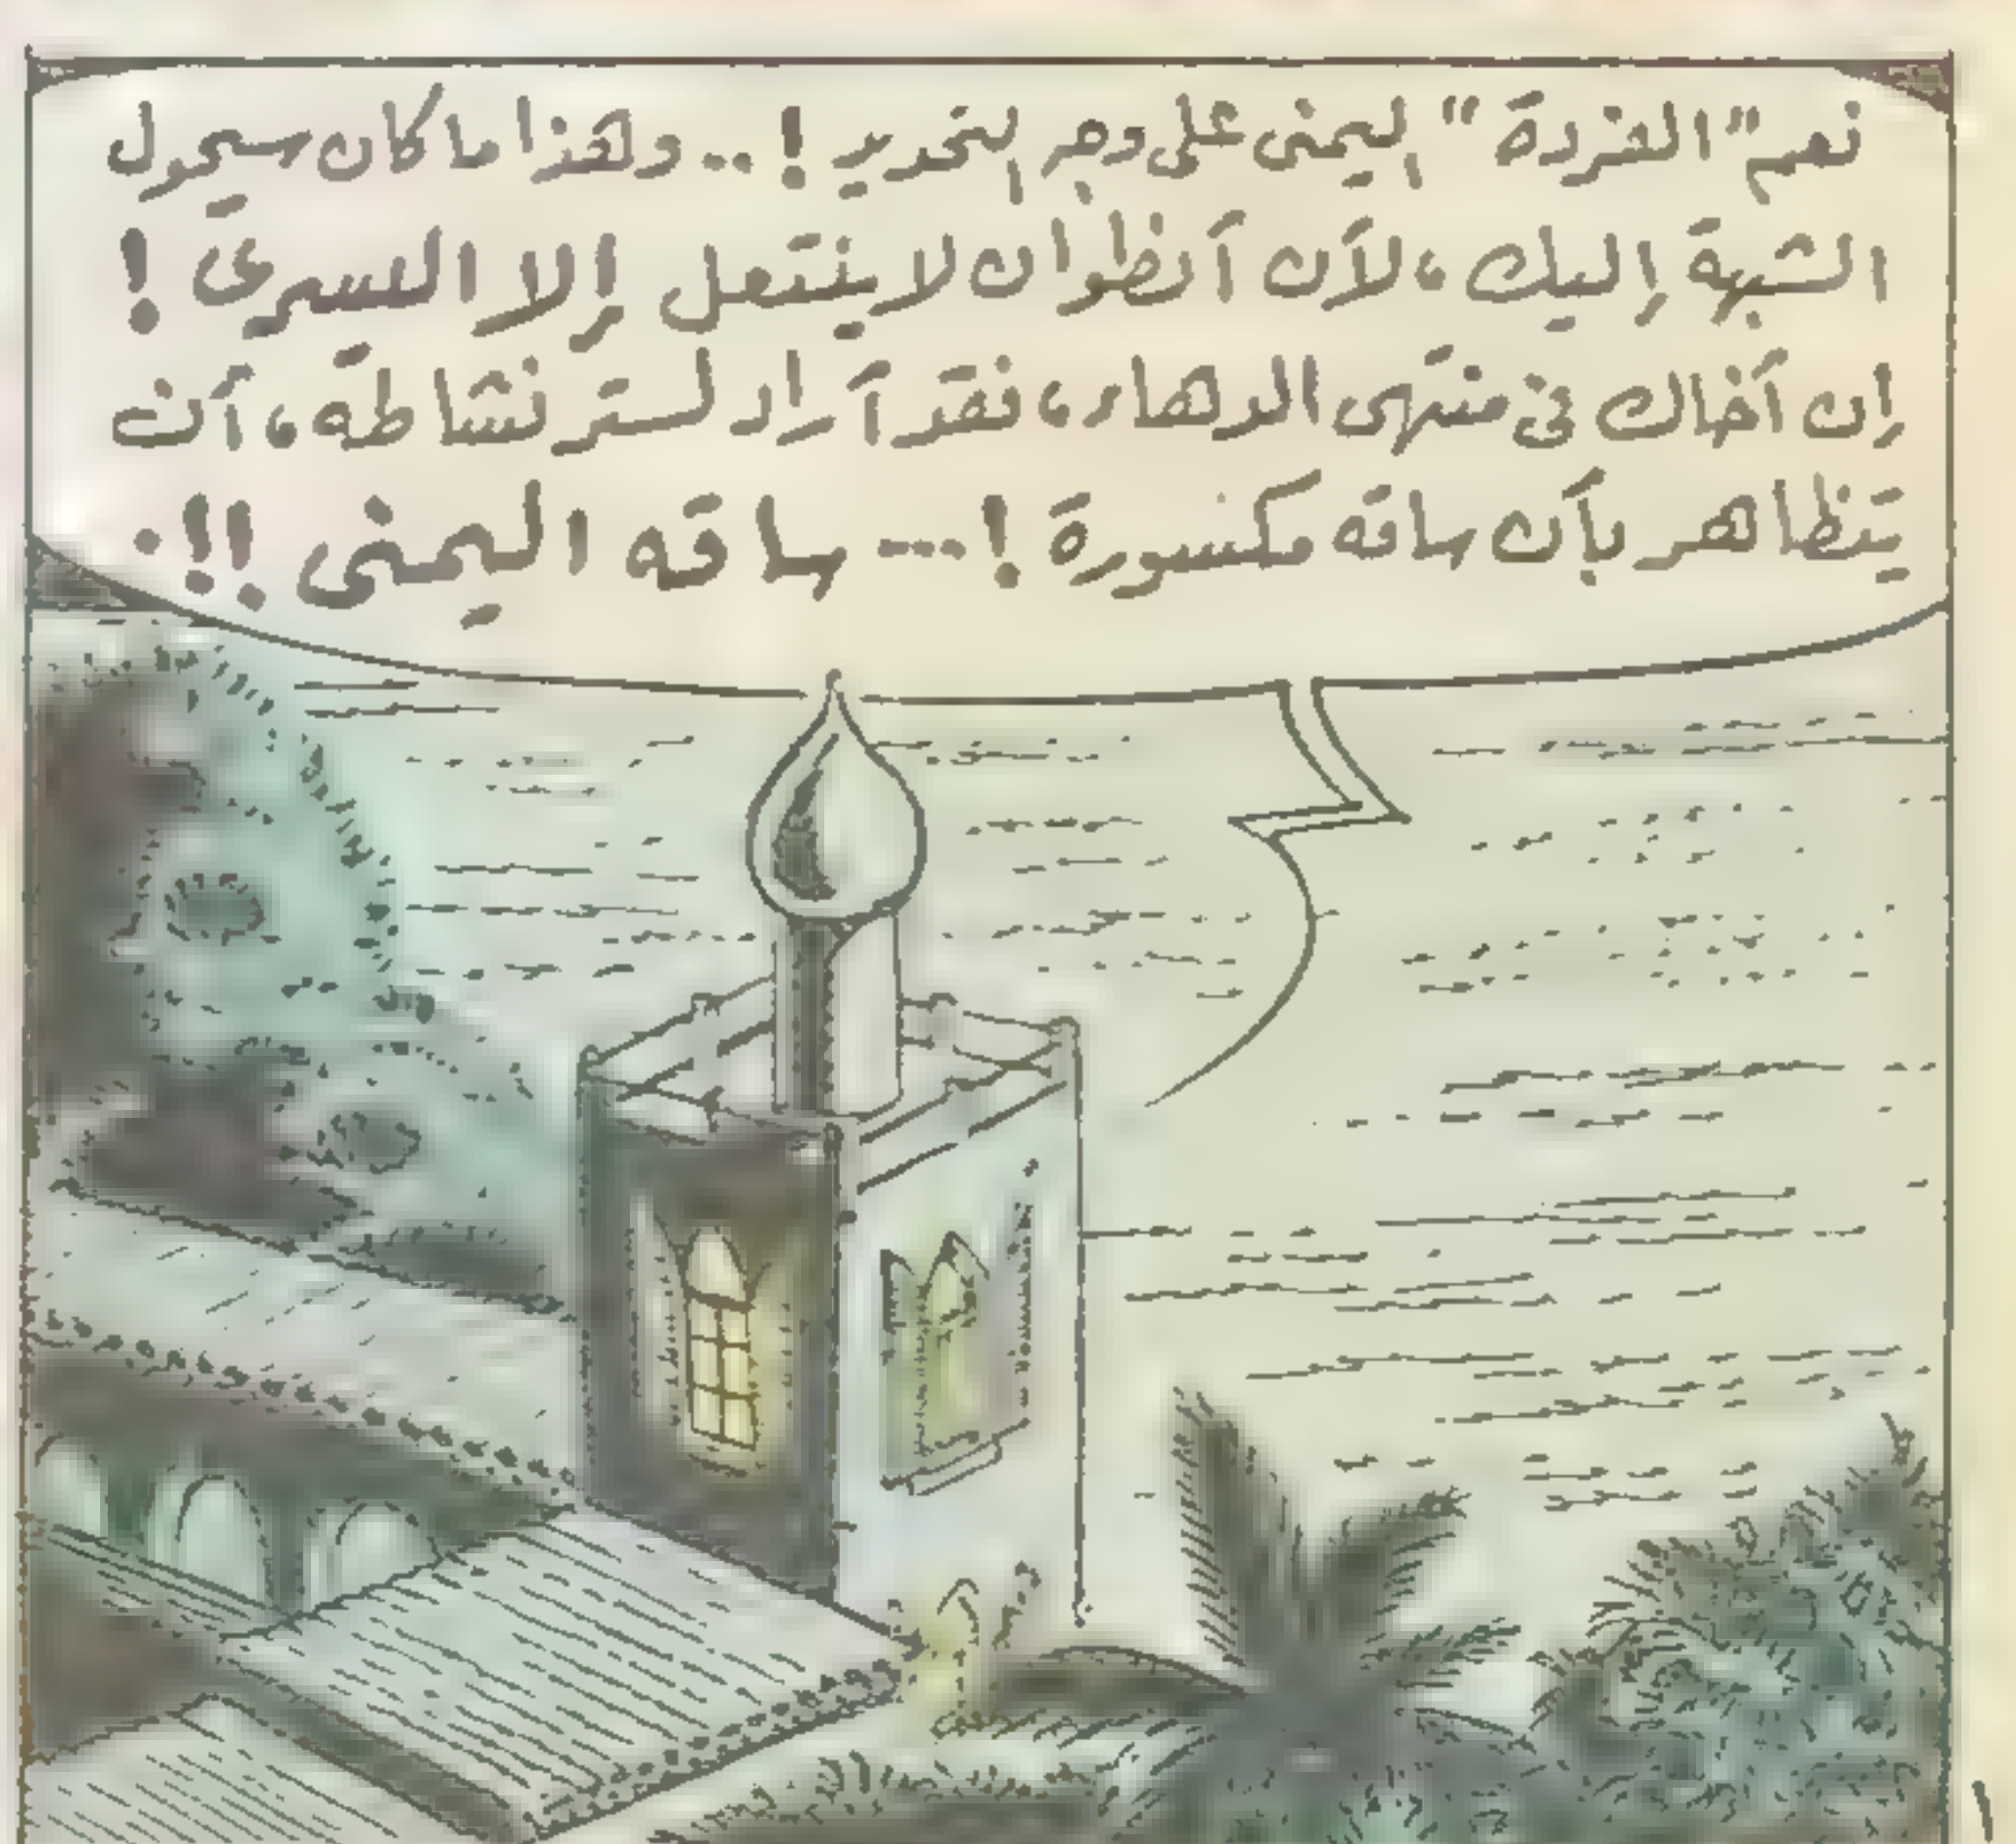 نعم "الفردة" اليمنى على وجه التحديد !.. وهذا ما كان سيحول
الشبهة إليك، لأن أنطوان لا ينتعل إلا اليسرى !
إن أخاك في منتهى الدهاء، فقد أراد لستر نشاطه، أن
يتظاهر بأن ساقه مكسورة !... ساقه اليمنى !!.